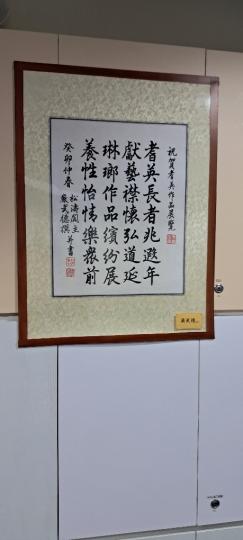 祝賀耆英作品展覽
耆英長者兆遐年
獻藝襟懷弘道延
琳瑯作品繽紛展
養性怡情樂衆前
癸卯仲春
松濤閣主
嚴武德撰并書